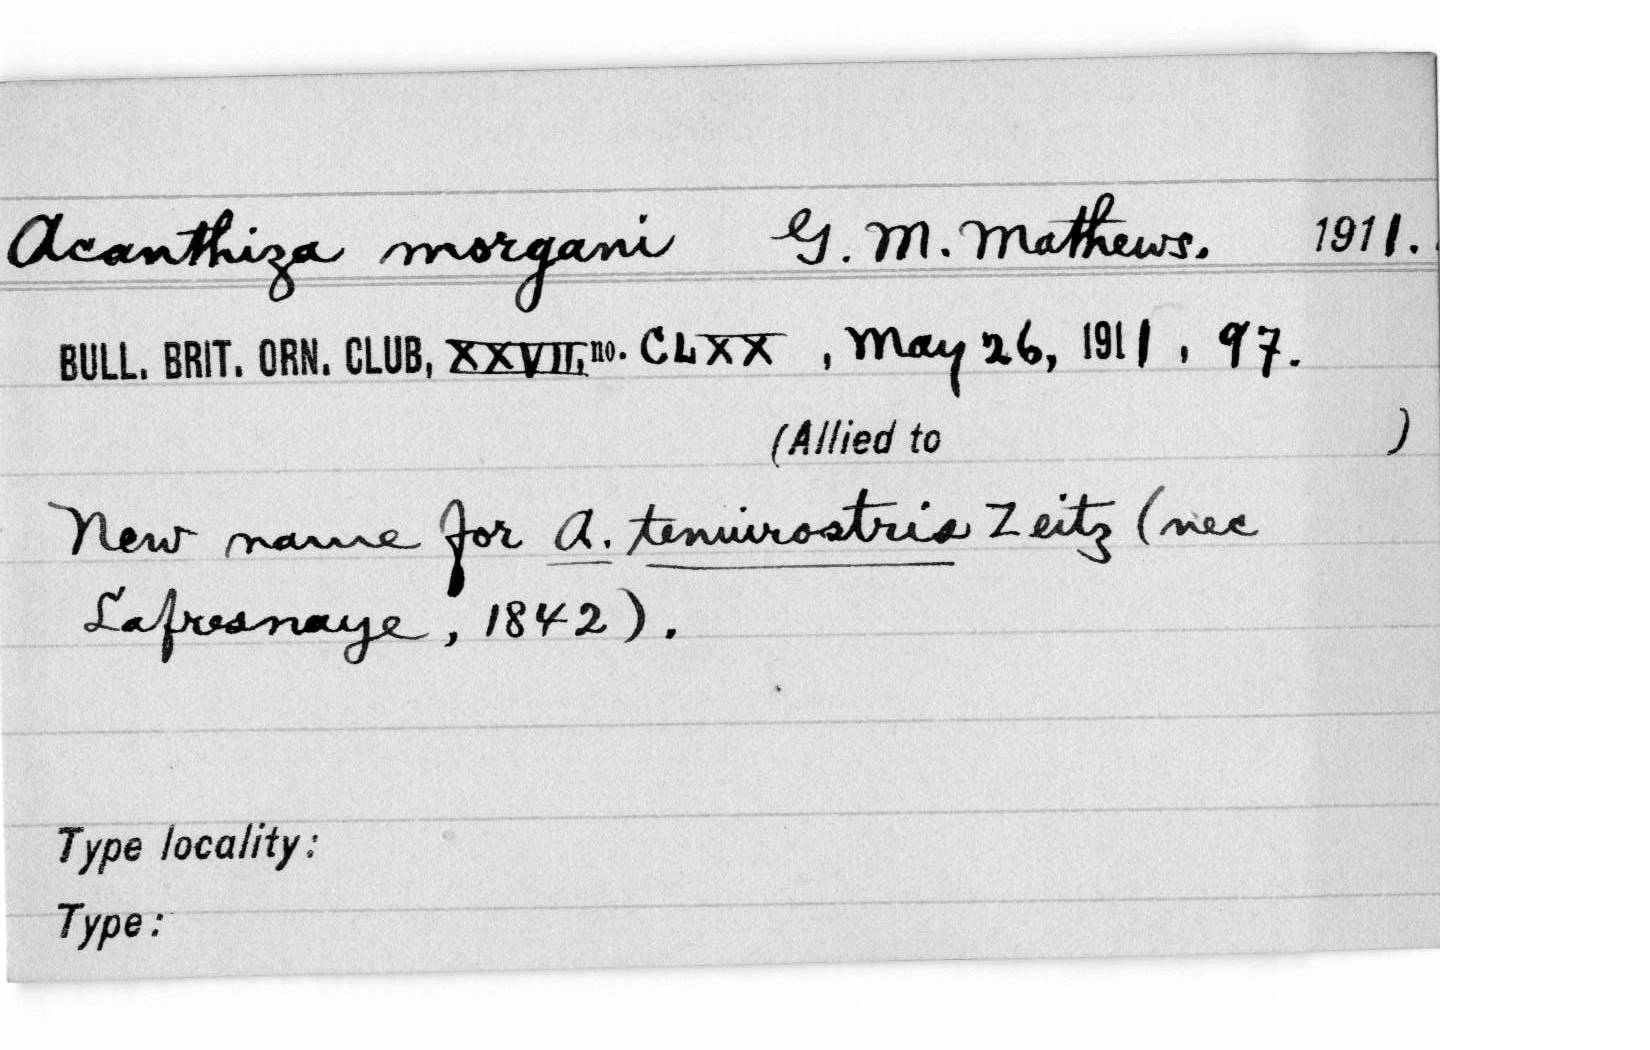 Acanthiza morgani G. M. Mathews. 1911.
BULL. BRIT. ORN. CLUB, XXVII, no. CLXX, May 26, 1911, 97.
(Allied to )
New name for A. tenuirostris Zeitz (nec
Lafresnaye, 1842).
Type locality:
Type: